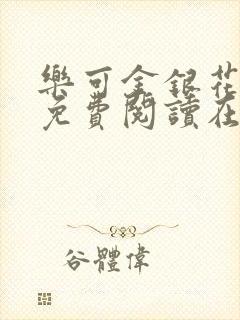 樂可金銀花
免費閱讀在
谷體偉